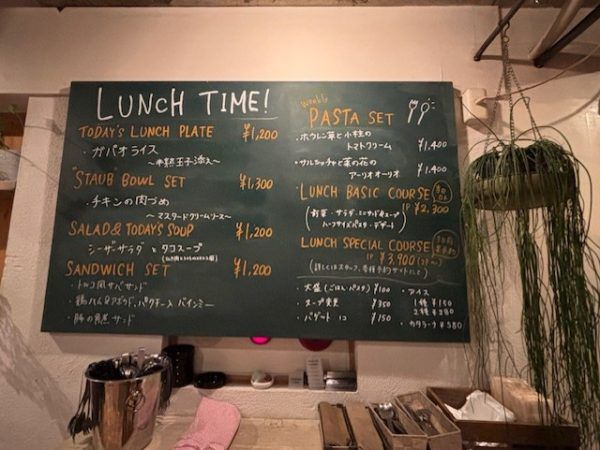 LUNCH TIME!
TODAY'S LUNCH PLATE ¥1,200
・ガパオライス
〜半熟玉子添え〜
"STAUB" BOWL SET ¥1,300
・チキンの肉づめ
〜マスタードクリームソース〜
SALAD & TODAY'S SOUP ¥1,200
シーザーサラダ と タコスープ
SANDWICH SET ¥1,200
・トルコ風サバサンド
・鶏ハム&アボカド、パクチー入バインミー
・豚の角煮サンド
weekly
PASTA SET
・ホウレン草と小柱の
トマトクリーム ¥1,400
・サルシッチャと菜の花の
アーリオオーリオ ¥1,400
LUNCH BASIC COURSE
1P ¥2,300
(前菜・サラダ・ミニサンド&スープ
ハーフサイズパスタ・デザート)
LUNCH SPECIAL COURSE
1P ¥3,900
・大盛(ごはん・パスタ) ¥100
・スープ変更 ¥350
・バゲット 1コ ¥150
・アイス
1種 ¥150
2種 ¥280
・カタラーナ ¥580